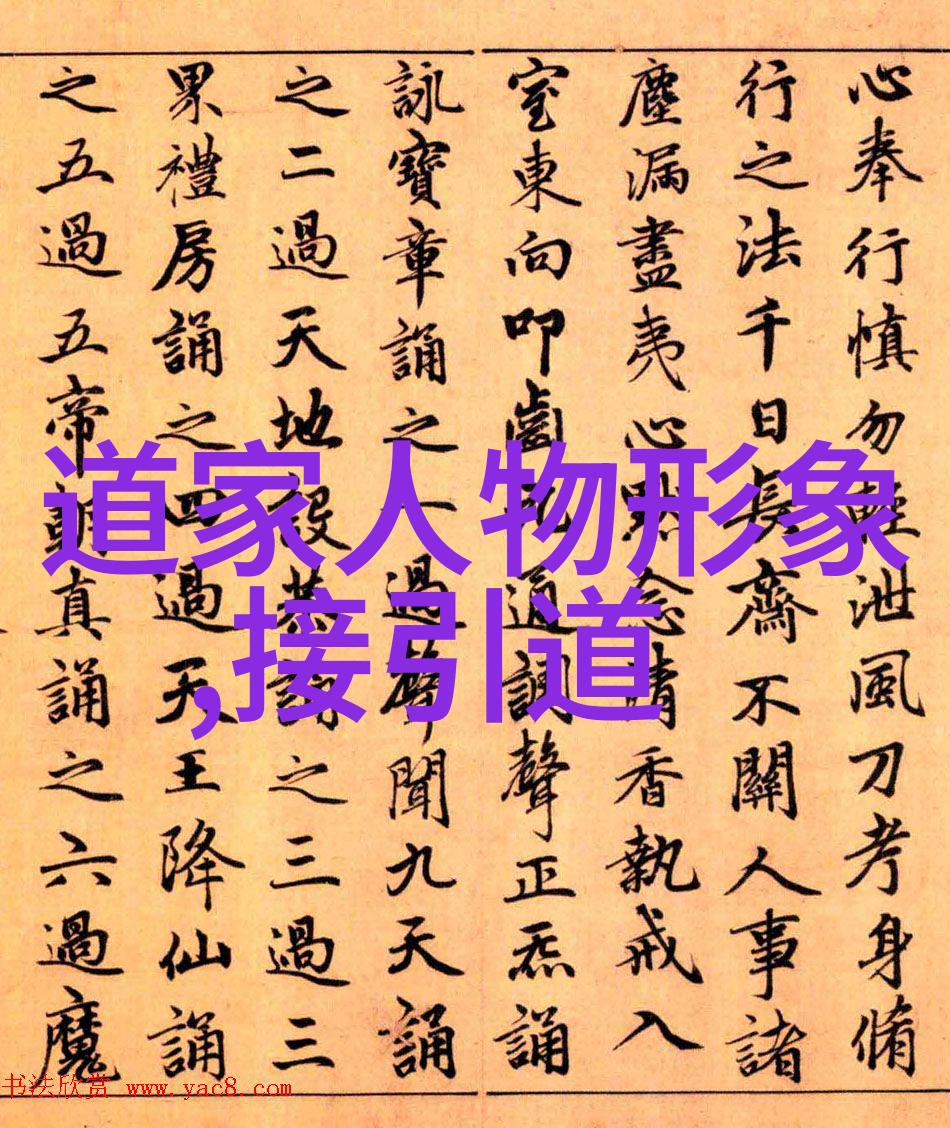 心奉行慎勿輕泄風刀考身脩
行之法千日長齋不關人事諸
塵漏盡夷心默念清香執戒入
室東向叩齒九通調聲正炁誦
詠寶章誦之一過聲聞九天誦
之二過天地設恭誦之三過三
界禮房誦之四過天王降仙誦
之五過五帝朝真誦之六過魔
道家人物形象
,接引道
书法欣赏 www.yac8.com